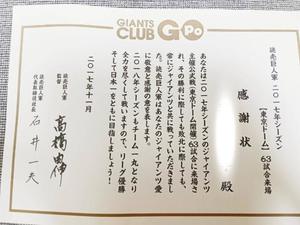 GIANTS
CLUB GO Po
読売巨人軍 二〇一七年シーズン
【東京ドーム】63試合来場
感謝状
殿
あなたは二〇一七年シーズンのジャイアンツ
主催公式戦(東京ドーム開催)63試合に来場さ
れ、その勝利に際しても敗北に際しても、
常にジャイアンツと共に戦っていただきまし
た。読売巨人軍はあなたのジャイアンツ愛
に敬意と感謝の意を表します。
二〇一八年シーズンもチーム一丸となり
全力を尽くして戦いますので、リーグ優勝
そして日本一をともに目指しましょう!
二〇一七年十一月
読売巨人軍
監督
高橋由伸
読売巨人軍
代表取締役社長
石井一夫